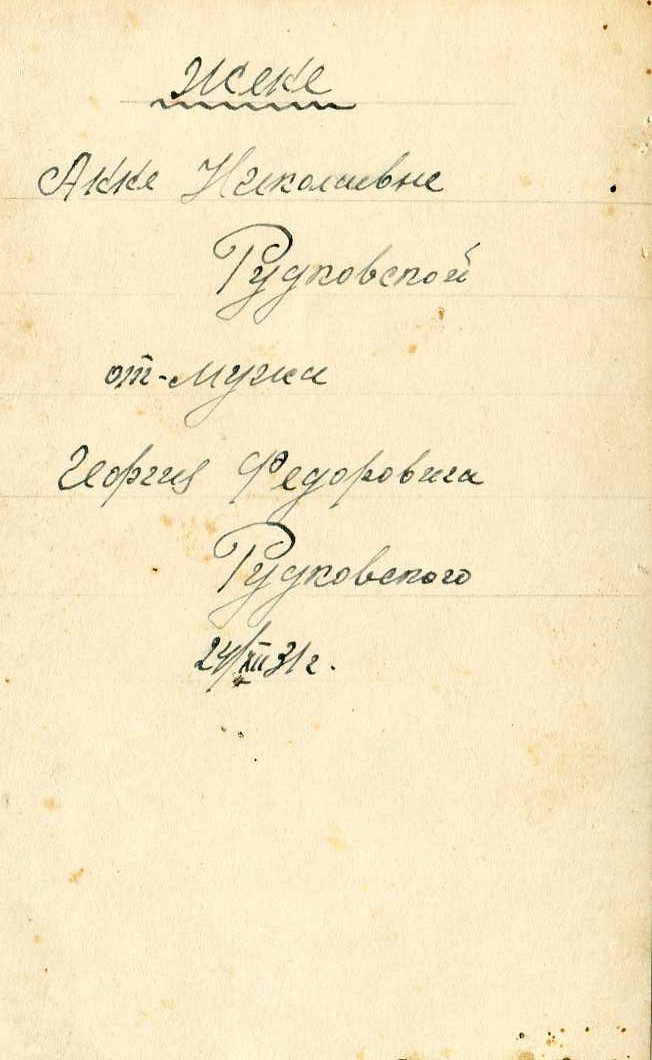 Жене
Анне Николаевне
Рудковской
от-мужа
Георгия Федоровича
Рудковского
24/XII 31 г.